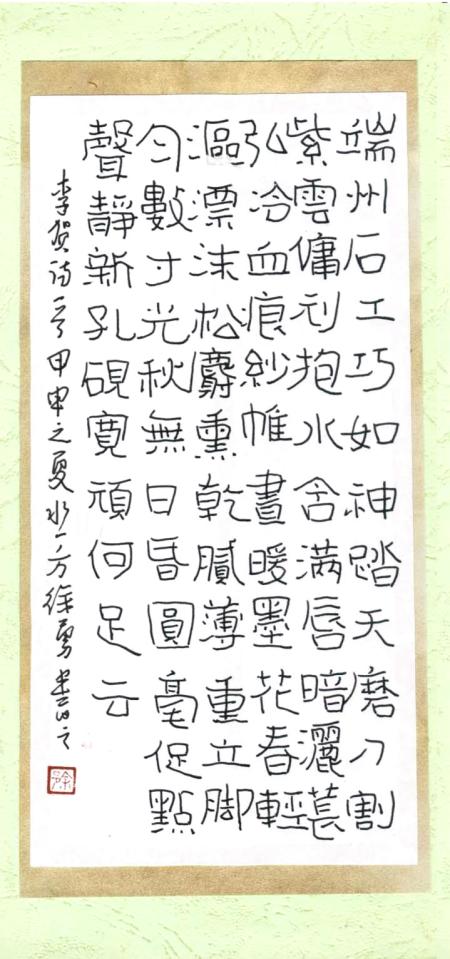 端州石工巧如神踏天磨刀割
紫雲傭刓抱水含满唇暗灑萇
弘冷血痕紗帷晝暖墨花春輕
漚漂沫松麝熏乾膩薄重立脚
匀數寸光秋無日昏圓毫促點
聲靜新孔硯寬頑何足云
李贺诗一首甲申之夏水一方徐勇書之
徐